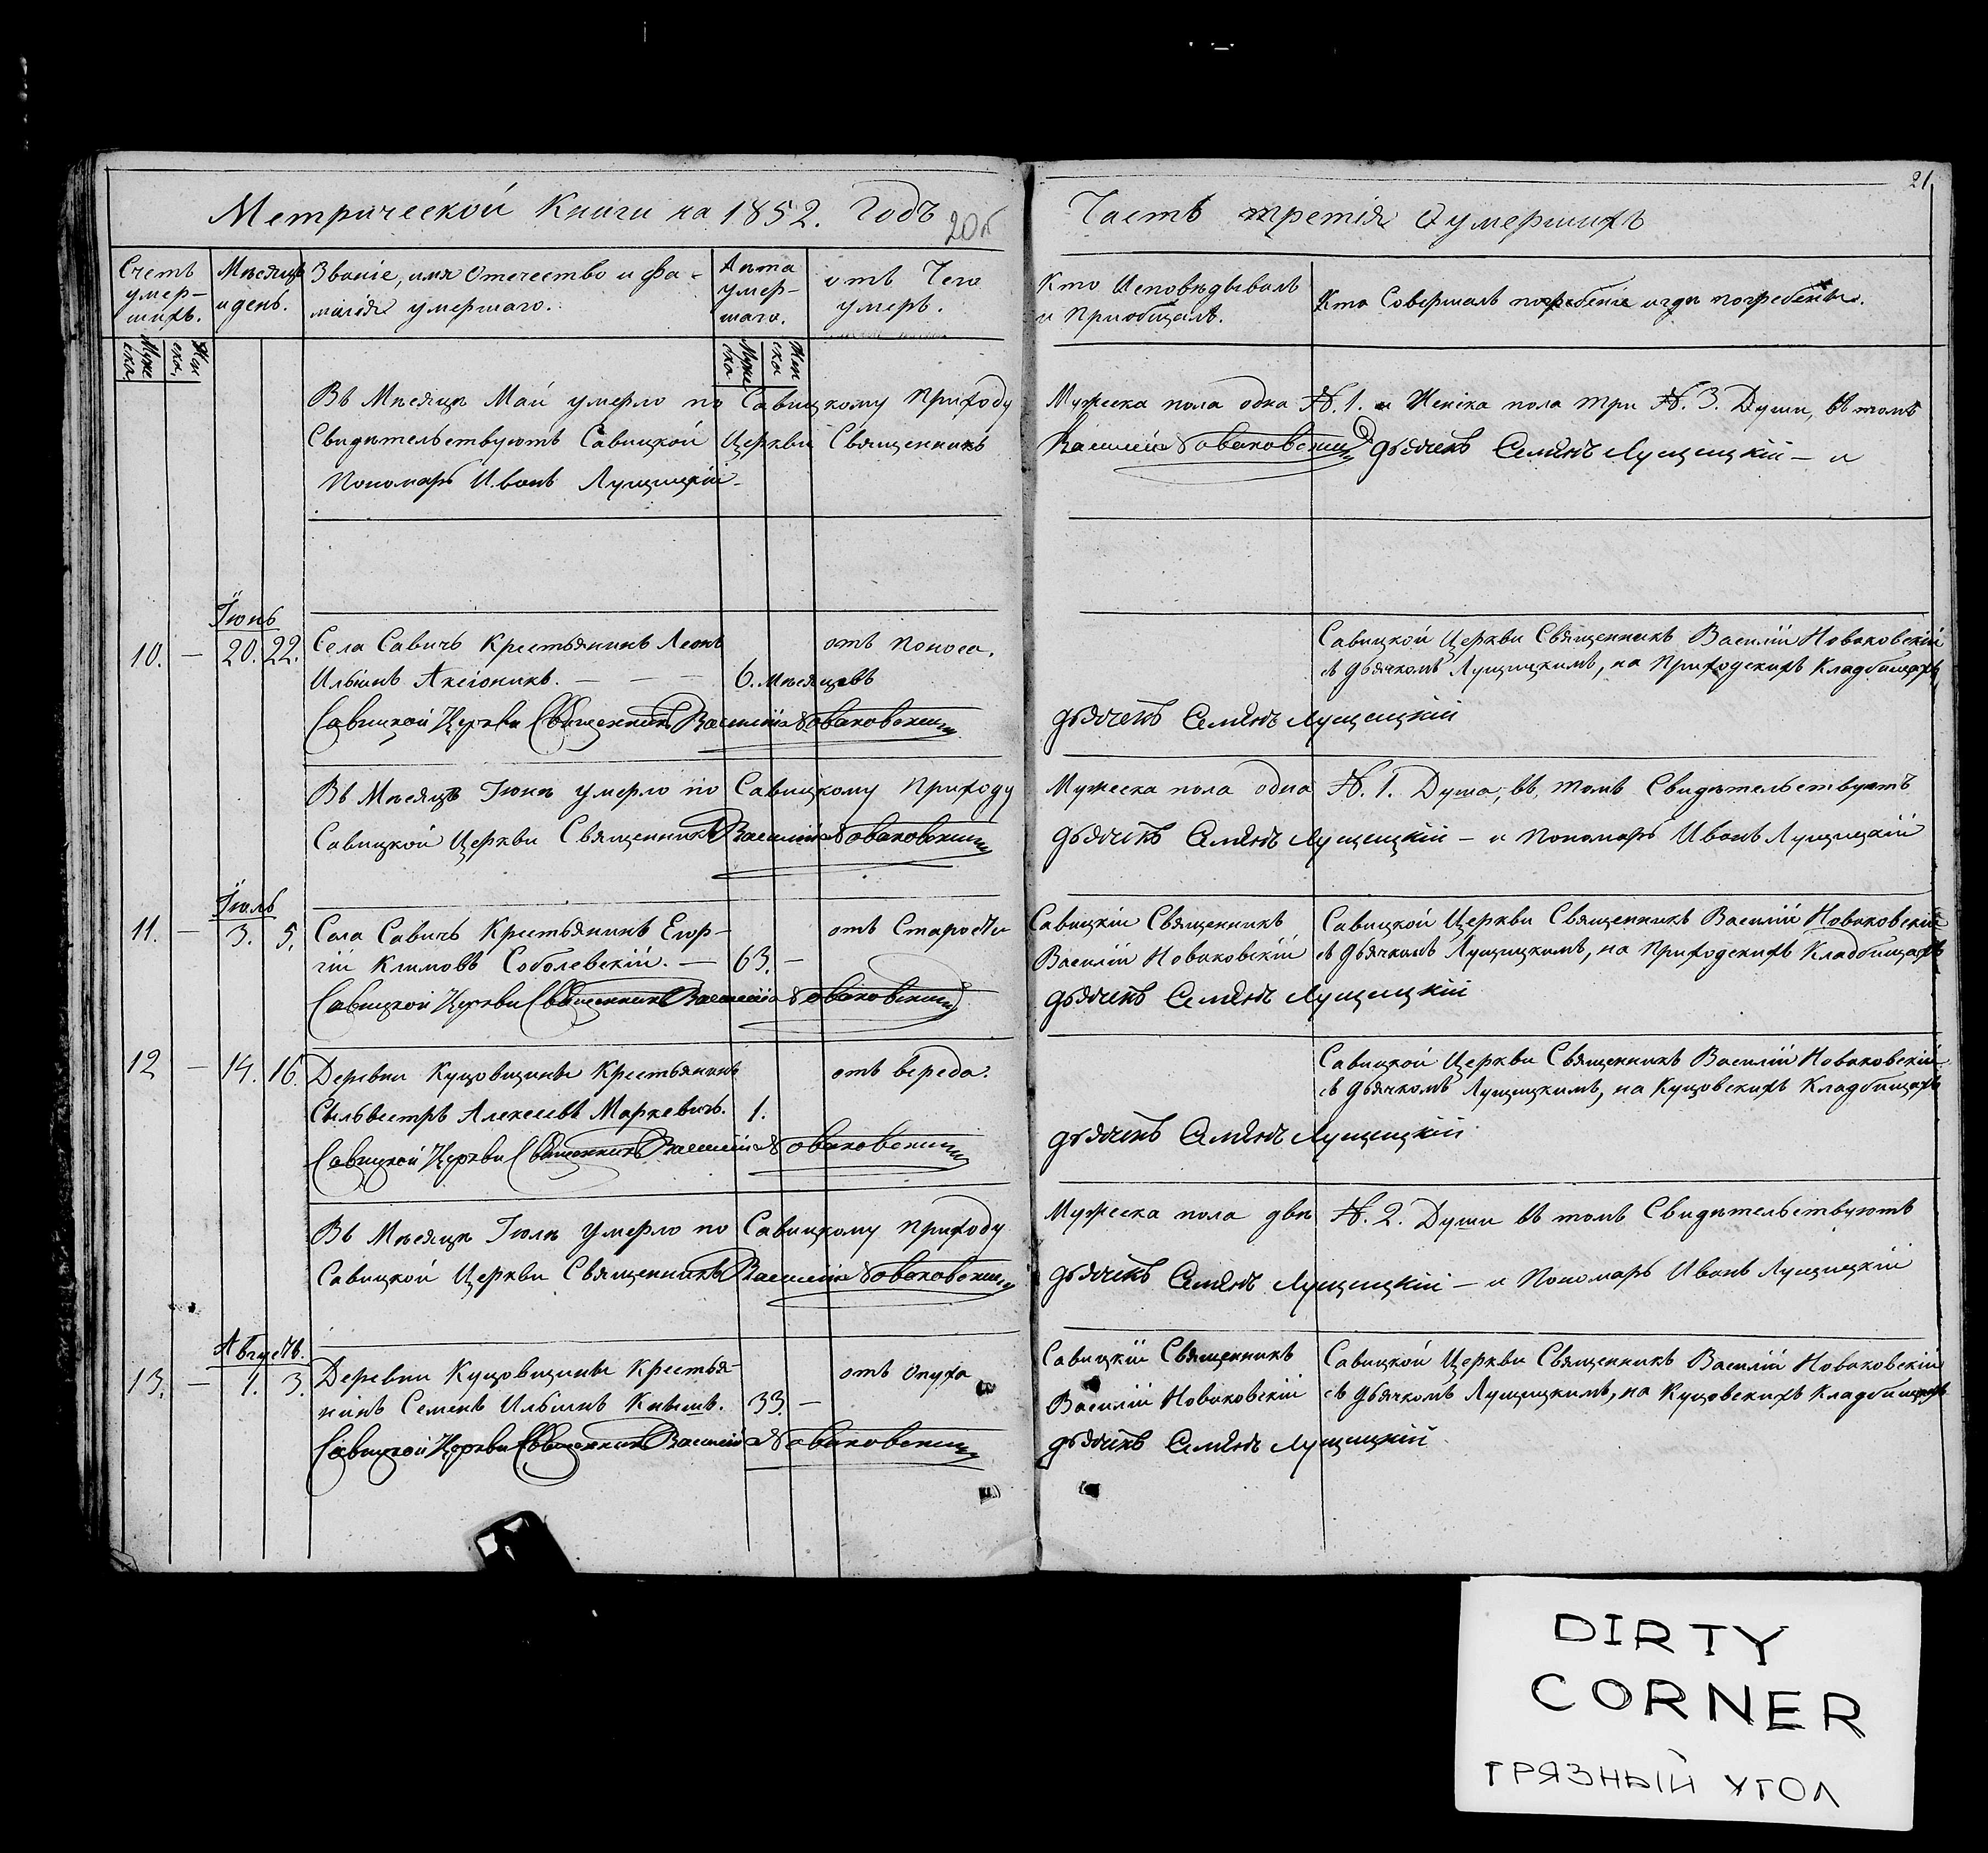 Метрической Книги на 1852. Годъ
20б
Счетъ умер-шихъ.
Мѣсяцъ и день.
Званіе, имя Отечество и фа-милія умершаго.
Лѣта умер-шаго.
отъ Чего умеръ.
Муже ска.
Жен ска.
Муже ска
Жен ска
Въ Мѣсяцѣ Маи умерло по Савицкому Приходу
Свидѣтельствуютъ Савицкой Церкви Священникъ
Пономарь Иванъ Лущицкій
Іюнь
10. — 20. 22. Села Савичъ Крестьянинъ Леонъ отъ поноса.
Ильинъ Аксіоникъ. — — — 6. мѣсяцовъ
Савицкой Церкви Священникъ Василій Новаковскій
Въ Мѣсяцѣ Іюнѣ умерло по Савицкому Приходу
Савицкой Церкви Священникъ Василій Новаковскій
Іюль
11. — 3. 5. Села Савичъ Крестьянинъ Егор- отъ Старости
гій Климовъ Соболевскій. — 63. —
Савицкой Церкви Священникъ Василій Новаковскій
12 — 14. 16. Деревни Куцовщины Крестьянинъ отъ вереда.
Сильвестръ Алексѣевъ Маркевичъ. 1.
Савицкой Церкви Священникъ Василій Новаковскій
Въ Мѣсяцѣ Іюлѣ умерло по Савицкому Приходу
Савицкой Церкви Священникъ Василій Новаковскій
Августъ.
13. — 1. 3. Деревни Куцовщины Крестья- отъ опуха
нинъ Семенъ Ильинъ Кнышъ. 33. —
Савицкой Церкви Священникъ Василій Новаковскій
21
Часть третія О умершихъ
Кто Исповѣдывалъ и Приобщалъ.
Кто Совершалъ погребеніе и гдѣ погребены.
Мужеска пола одна №. 1. и Женска пола три №. 3. Души, въ томъ
Василій Новаковскій дьячекъ Семенъ Лущицкій — и
Савицкой Церкви Священникъ Василій Новаковскій
съ дьячкомъ Лущицкимъ, на Приходскихъ Кладбищахъ
дьячекъ Семенъ Лущицкій
Мужеска пола одна №. 1. Душа, въ томъ Свидѣтельствуютъ
дьячекъ Семенъ Лущицкій — и Пономарь Иванъ Лущицкій
Савицкій Священникъ Савицкой Церкви Священникъ Василій Новаковскій
Василій Новаковскій съ дьячкомъ Лущицкимъ, на Приходскихъ Кладбищахъ
дьячекъ Семенъ Лущицкій
Савицкой Церкви Священникъ Василій Новаковскій
съ дьячкомъ Лущицкимъ, на Куцовскихъ Кладбищахъ
дьячекъ Семенъ Лущицкій
Мужеска пола двѣ №. 2. Души въ томъ Свидѣтельствуютъ
дьячекъ Семенъ Лущицкій — и Пономарь Иванъ Лущицкій
Савицкій Священникъ Савицкой Церкви Священникъ Василій Новаковскій
Василій Новаковскій съ дьячкомъ Лущицкимъ, на Куцовскихъ Кладбищахъ
дьячекъ Семенъ Лущицкій
DIRTY
CORNER
ГРЯЗНЫЙ УГОЛ